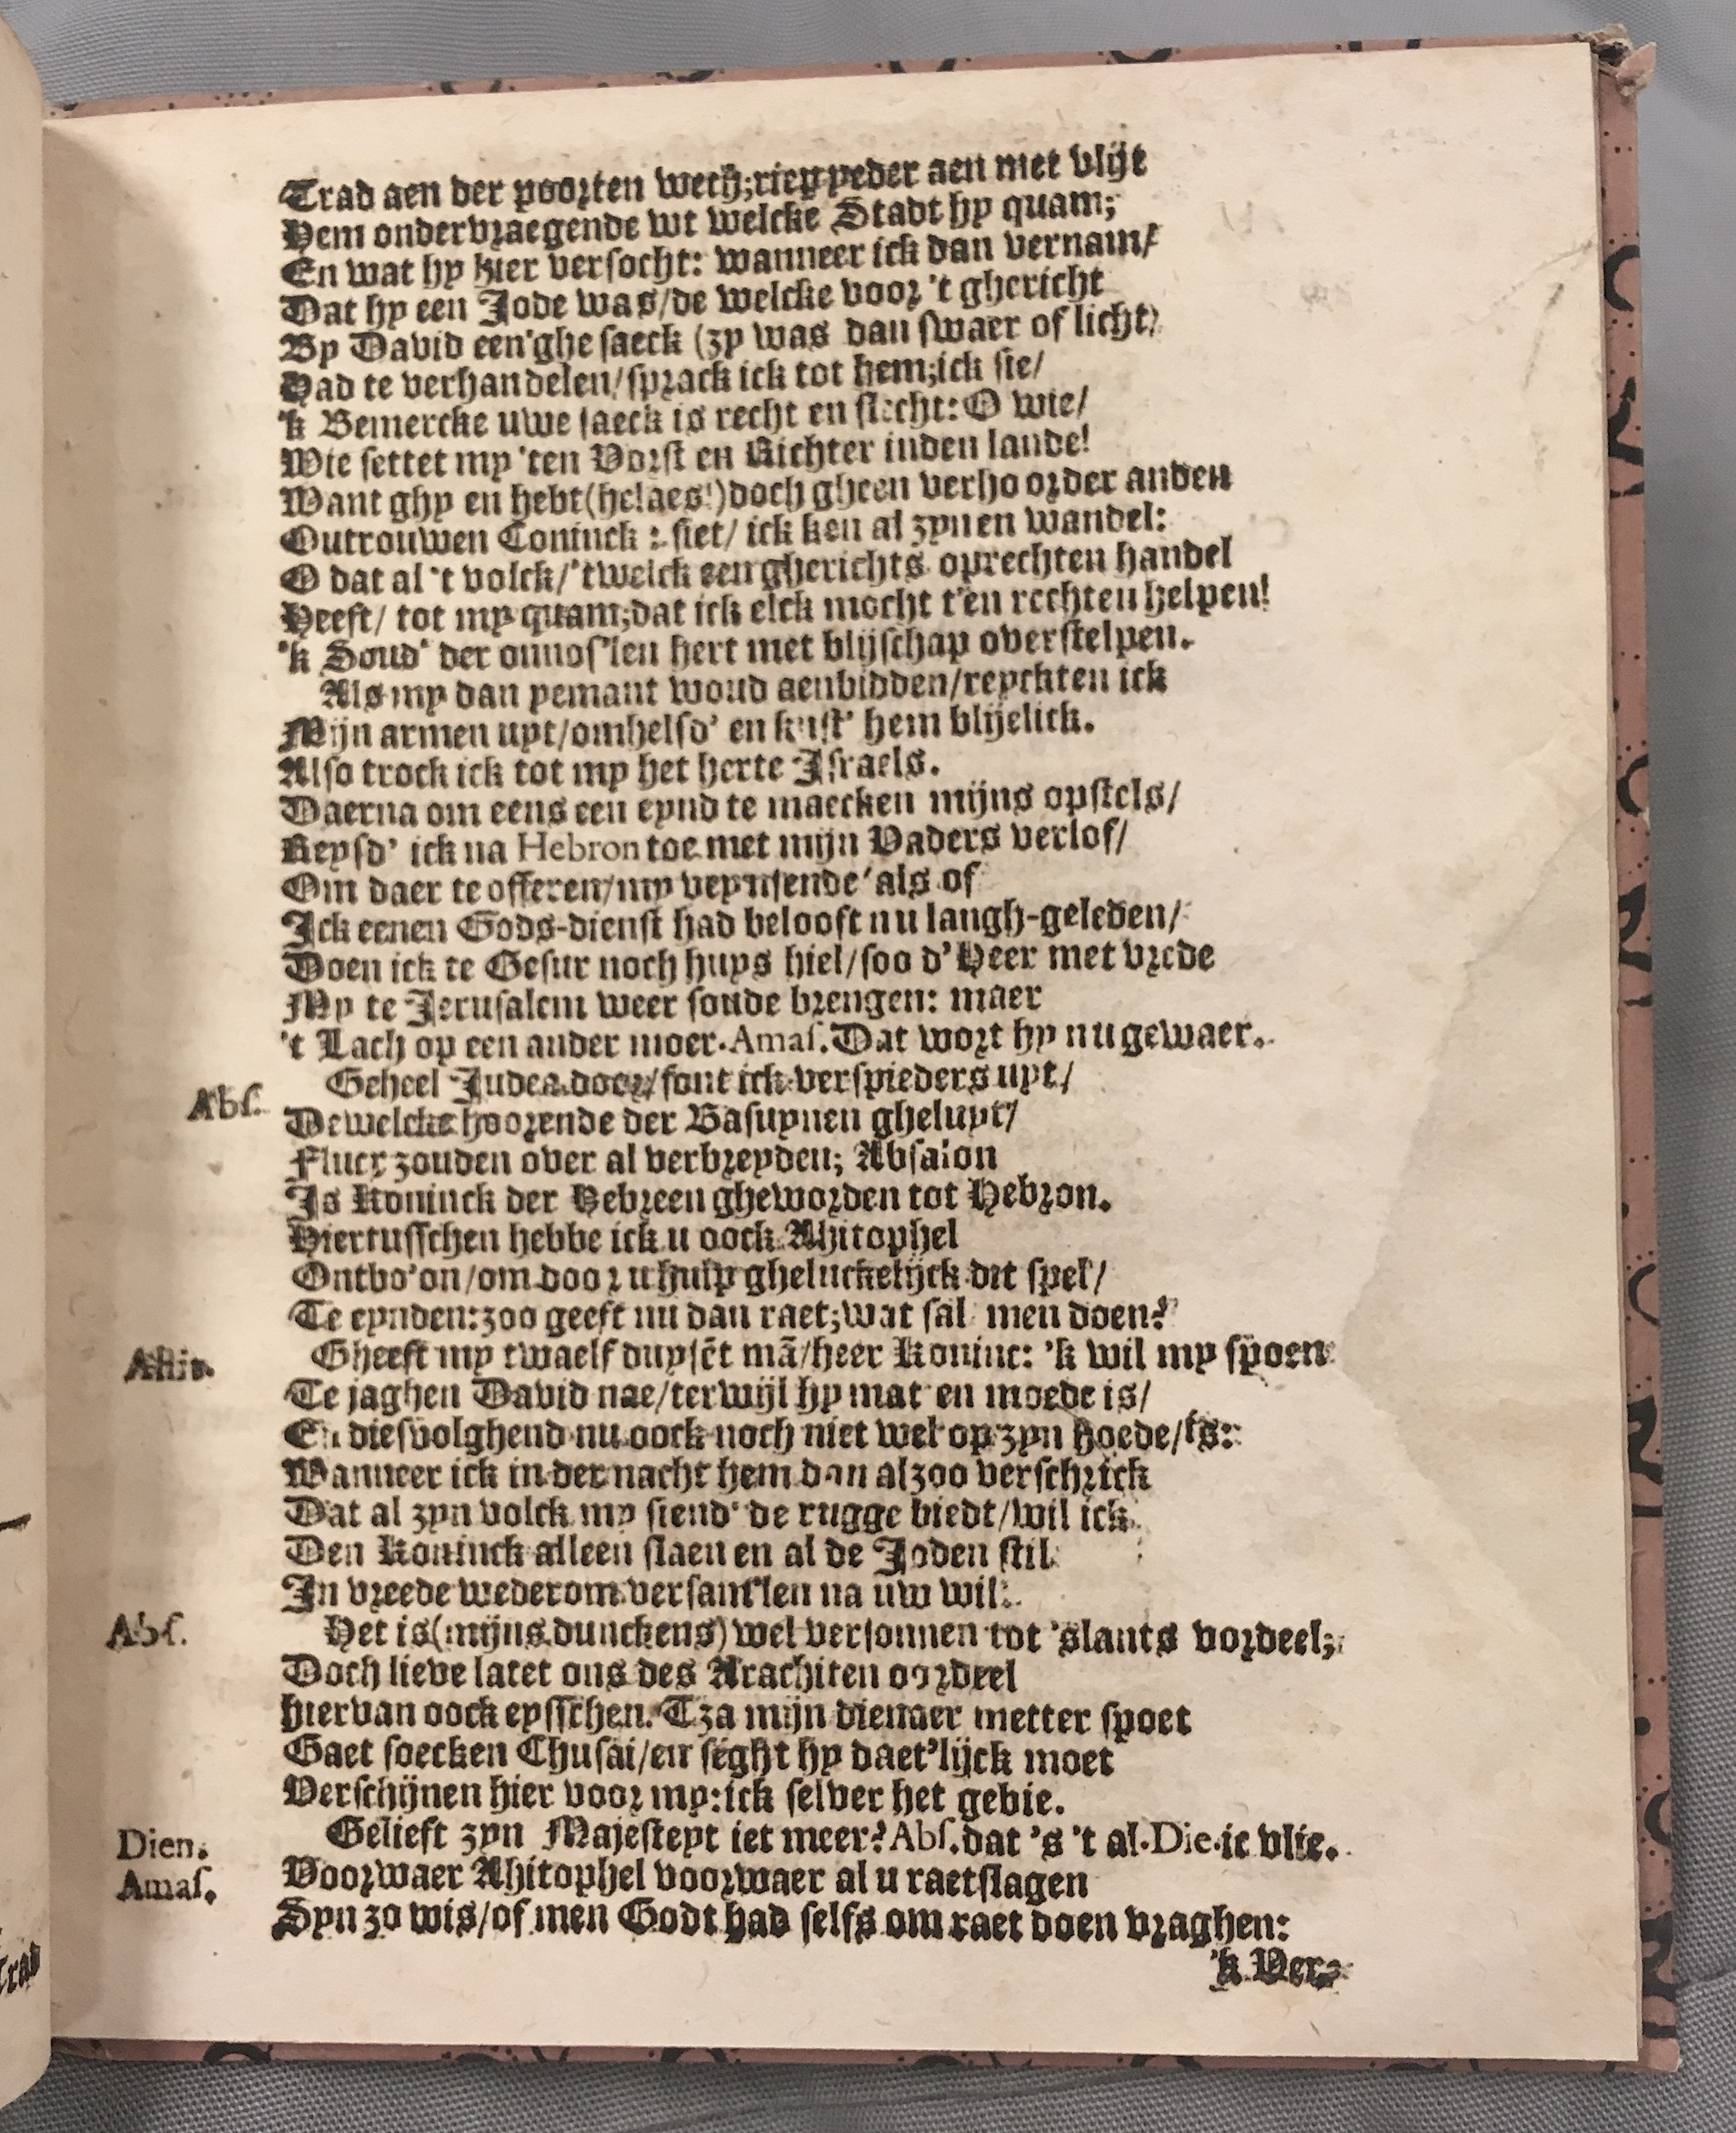 Trad aen der poorten wech; riep peder aen met vlijt
Hem ondervraegende wt welcke Stadt hy quam;
En wat hy hier versocht: wanneer ick dan vernam/
Dat hy een Jode was/de welcke voor 't ghericht
By David een'ghe saeck (zy was dan swaer of licht)
Had te verhandelen/sprack ick tot hem;ick sie/
'k Bemercke uwe saeck is recht en slecht: O wie/
Wie settet my 'ten Vorst en Richter inden lande!
Want ghy en hebt(helaes!)doch gheen verhoorder anden
Outrouwen Coninck : siet/ ick ken al zynen wandel:
O dat al 't volck/'twelck een gherichts oprechten handel
Heeft/ tot my quam;dat ick elck mocht t'en rechten helpen!
'k Soud' der onnos'len hert met blijschap overstelpen.
Als my dan yemant woud aenbidden/reyckten ick
Mijn armen uyt/omhelsd' en kust' hem blijelick.
Also trock ick tot my het herte Israels.
Daerna om eens een eynd te maecken mijns opstels/
Reysd' ick na Hebron toe met mijn Vaders verlof/
Om daer te offeren/my veynsende' als of
Ick eenen Gods-dienst had belooft nu langh-geleden/
Doen ick te Gesur noch huys hiel/soo d'Heer met vrede
My te Jerusalem weer soude brengen: maer
't Lach op een ander moer. Amas. Dat wort hy nu gewaer.
Abs. Geheel Judea door/sont ick verspieders uyt/
Dewelcke hoorende der Basuynen gheluyt/
Flucx zouden over al verbreyden; Absalon
Is Koninck der Hebreen gheworden tot Hebron.
Hiertusschen hebbe ick u oock Ahitophel
Ontbo'on/om door u hulp gheluckelijck dit spel/
Te eynden:zoo geeft nu dan raet;wat sal men doen?
Ahit. Gheeft my twaelf duysēt mā/heer Koninc: 'k wil my spoen
Te jaghen David nae/terwijl hy mat en moede is/
En diesvolghend nu oock noch niet wel op zyn hoede/is:
Wanneer ick in der nacht hem dan alzoo verschrick
Dat al zyn volck my siend' de rugge biedt/wil ick
Den Koninck alleen slaen en al de Joden stil
In vreede wederom versam'len na uw wil.
Abs. Het is(mijns dunckens)wel versonnen tot 'slants vordeel;
Doch lieve latet ons des Arachiten oordeel
hiervan oock eysschen. Tza mijn dienaer metter spoet
Gaet soecken Chusai/en seght hy daet'lijck moet
Verschijnen hier voor my:ick selver het gebie.
Dien. Gelieft zyn Majesteyt iet meer? Abs. dat 's 't al. Die. ic vlie.
Amas. Voorwaer Ahitophel voorwaer al u raetslagen
Syn zo wis/of men Godt had selfs om raet doen vraghen:
'k Ver-